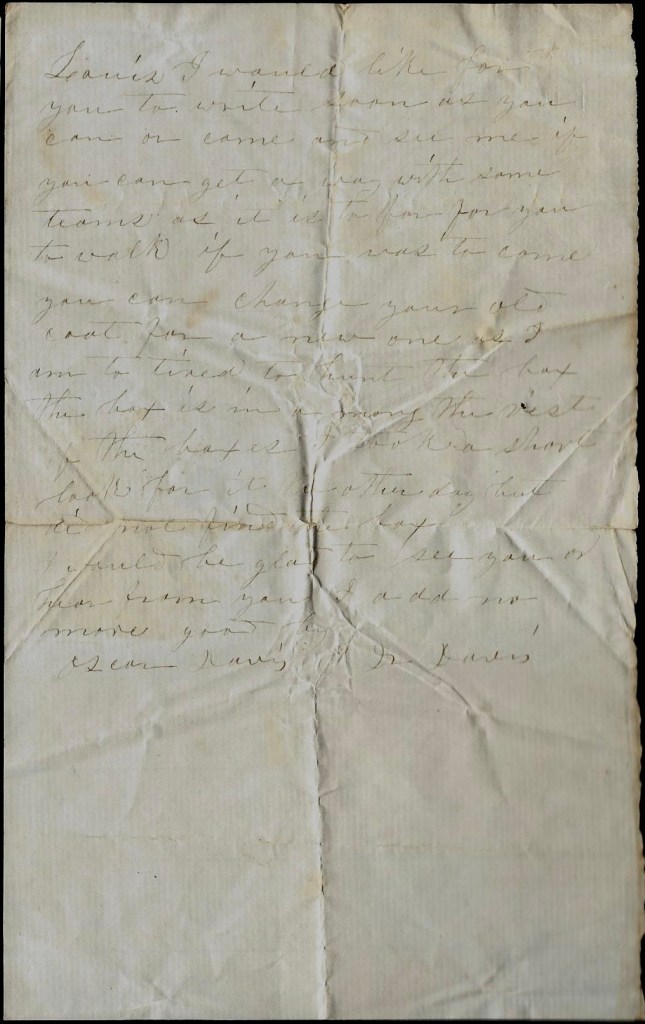 Louis I would like for
you to write soon as you
can or come and see me if
you can get a way with some
teams as it is to far for you
to walk if you was to come
you can change your old
coat for a new one as I
am to tired to hunt the box
the box is in a mong the rest
of the boxes I took a short
look for it the other day but
di not find the box
I would be glad to see you or
hear from you I add no
more good by
Oscar Davis Davis